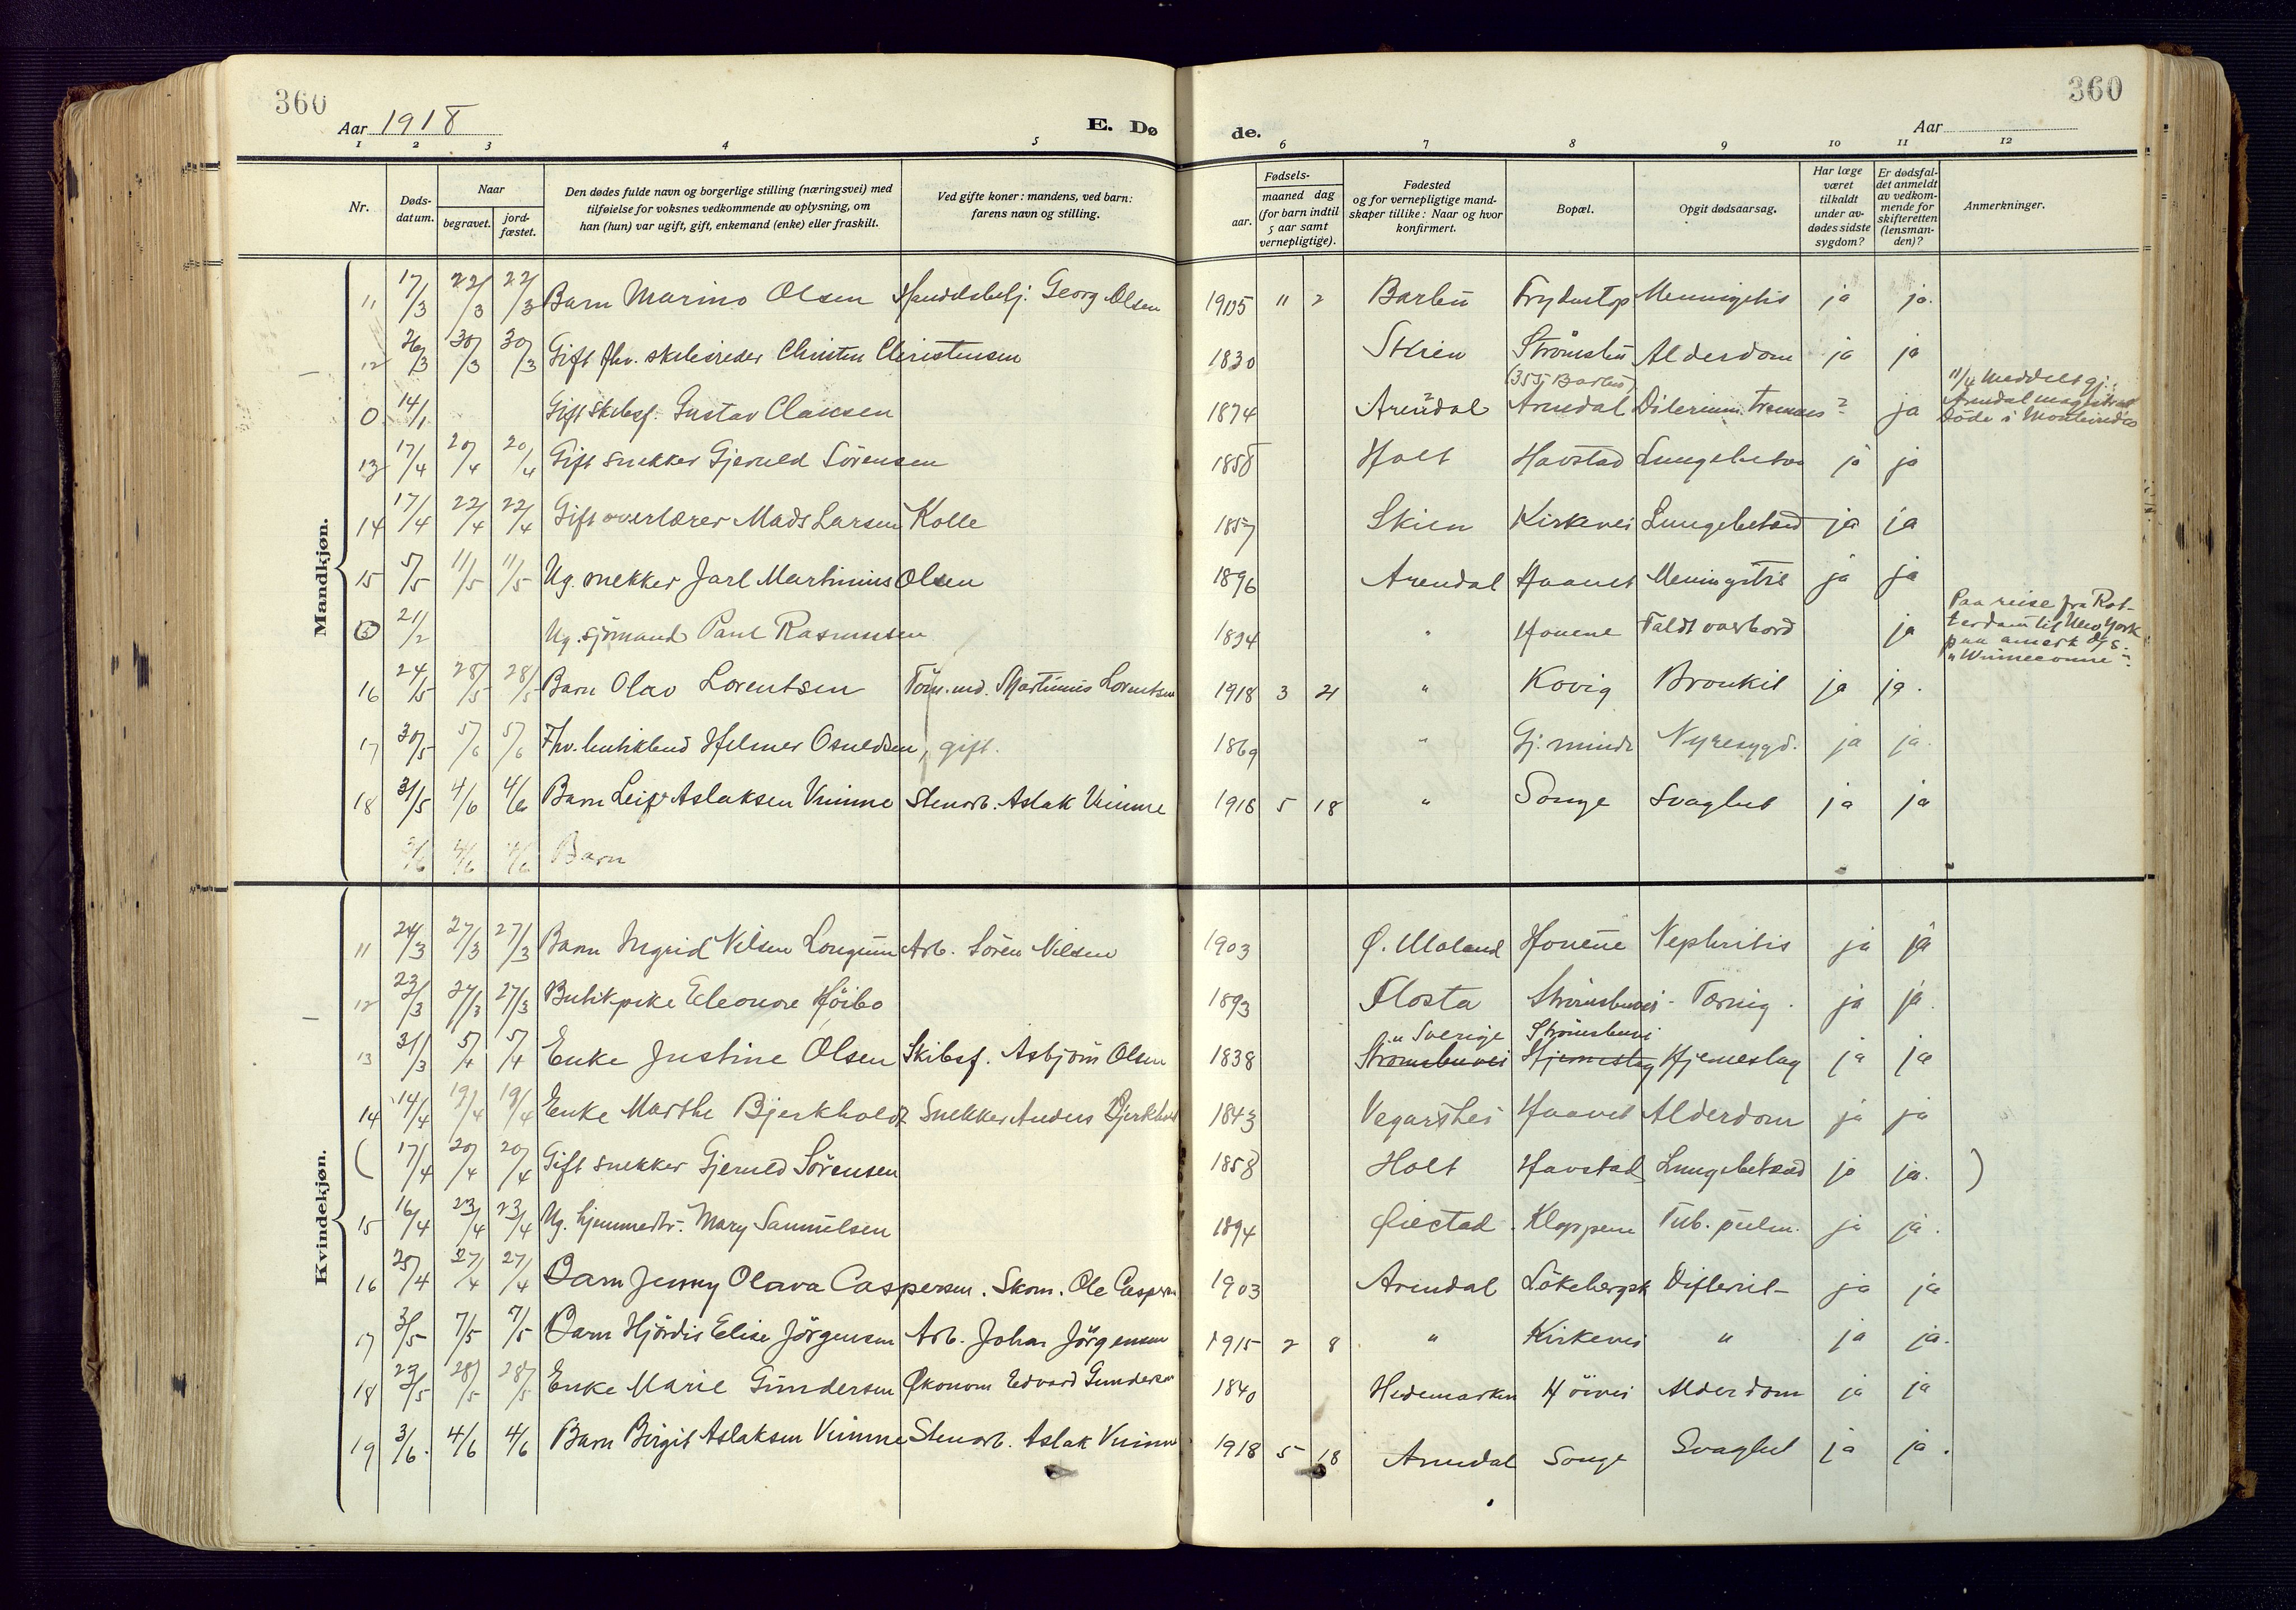 360
360
Aar 1918
E. Dø
de.
Aar
1 2 3 4 5 6 7 8 9 10 11 12
Nr.
Døds-
datum.
Naar
begravet.
jord-
fæstet.
Den dødes fulde navn og borgerlige stilling (næringsvei) med
tilføielse for voksnes vedkommende av oplysning, om
han (hun) var ugift, gift, enkemand (enke) eller fraskilt.
Ved gifte koner: mandens, ved barn:
farens navn og stilling.
Fødsels-
aar.
maaned dag
(for barn indtil
5 aar samt
vernepligtige).
Fødested
og for vernepligtige mand-
skaper tillike: Naar og hvor
konfirmert.
Bopæl.
Opgit dødsaarsag.
Har læge
været
tilkaldt
under av-
dødes sidste
sygdom?
Er dødsfal-
det anmeldt
av vedkom-
mende for
skifteretten
(lensman-
den)?
Anmerkninger.
Mandkjøn.
11 17/3 22/3 22/3 Barn Marino Olsen Handelsbetj. Georg Olsen 1905 11 2 Barbu Meningitis ja ja.
12 26/3 30/3 30/3 Gift fhv. skibsreder Christen Christensen 1830 Skien Strömsbu Alderdom ja ja
(355 Barbu)
0 14/1 Gift skibsf. Gustav Clausen 1874 Arendal ? Arendal Dilerium tremens? ja
11/4 Meddelt gj.
Arendal magistrat
Döde i Montevideo
13 17/4 20/4 20/4 Gift snekker Gjeruld Sörensen 1858 Holt Havstad ja ja
14 17/4 22/4 22/4 Gift overlærer Mads Larsen Kolle 1857 Skien Kirkevei Lungebetænd ja ja
15 5/5 11/5 11/5 Ug. snekker Jarl Martinius Olsen 1896 Arendal Meningitis ja ja
21/2 Ug. sjömand Paul Rasmussen 1894 " Faldt overbord ja
Paa reise fra Rot-
terdam til New York
paa amerk D/S.
"Winneconne".
16 24/5 28/5 28/5 Barn Olav Lorentsen Töm.md. Martinius Lorentsen 1918 3 21 " Kovig Bronkit ja ja.
17 30/5 5/6 5/6 Fhv. Hilmer Osuldsen, gift. 1869 " Gj. minde Nyresygd. ja ja.
18 31/5 4/6 4/6 Barn Leif Aslaksen Vimme Stenarb. Aslak Vimme 1918 5 18 " Songe Svaghet ja ja
3/6 4/6 4/6 Barn
Kvindekjøn.
11 24/3 27/3 27/3 Barn Ingrid Nilsen Longum Arb. Sören Nilsen 1903 Ø. Moland Nephritis ja ja
12 23/3 27/3 27/3 Butikpike Eleonore Höibo 1893 Flosta Strömsbuvei Tæring. ja ja.
" Sverige Strömsbuvei
13 31/3 5/4 5/4 Enke Justine Olsen Skibsf. Asbjörn Olsen 1838 Strömsbuvei Hjerneslag Hjerneslag ja ja
14 14/4 19/4 19/4 Enke Marthe Bjerkholdt Snekker Anders Bjerkholdt 1843 Vegarshei Alderdom ja ja
( 17/4 20/4 20/4 Gift snekker Gjeruld Sörensen 1858 Holt Havstad Lungebetænd ja ja. )
15 16/4 23/4 23/4 Ug. hjemmedtr. Mary Samuelsen 1894 Øiestad Kloppene Tub. pulm. ja ja.
16 25/4 27/4 27/4 Barn Jenny Olava Caspersen. Skom. Ole Caspersen 1903 Arendal Lökebergsk Difterit ja ja
17 3/5 7/5 7/5 Barn Hjördis Elise Jörgensen Arb. Johan Jörgensen 1915 2 8 " Kirkevei " ja ja.
18 23/5 28/5 28/5 Enke Marie Gundersen Økonom Edvard Gundersen 1840 Hedemarken Höivei Alderdom ja ja
19 3/6. 4/6 4/6 Barn Birgit Aslaksen Vimme Stenarb. Aslak Vimme 1918 5 18 Arendal Songe Svaghet ja ja.